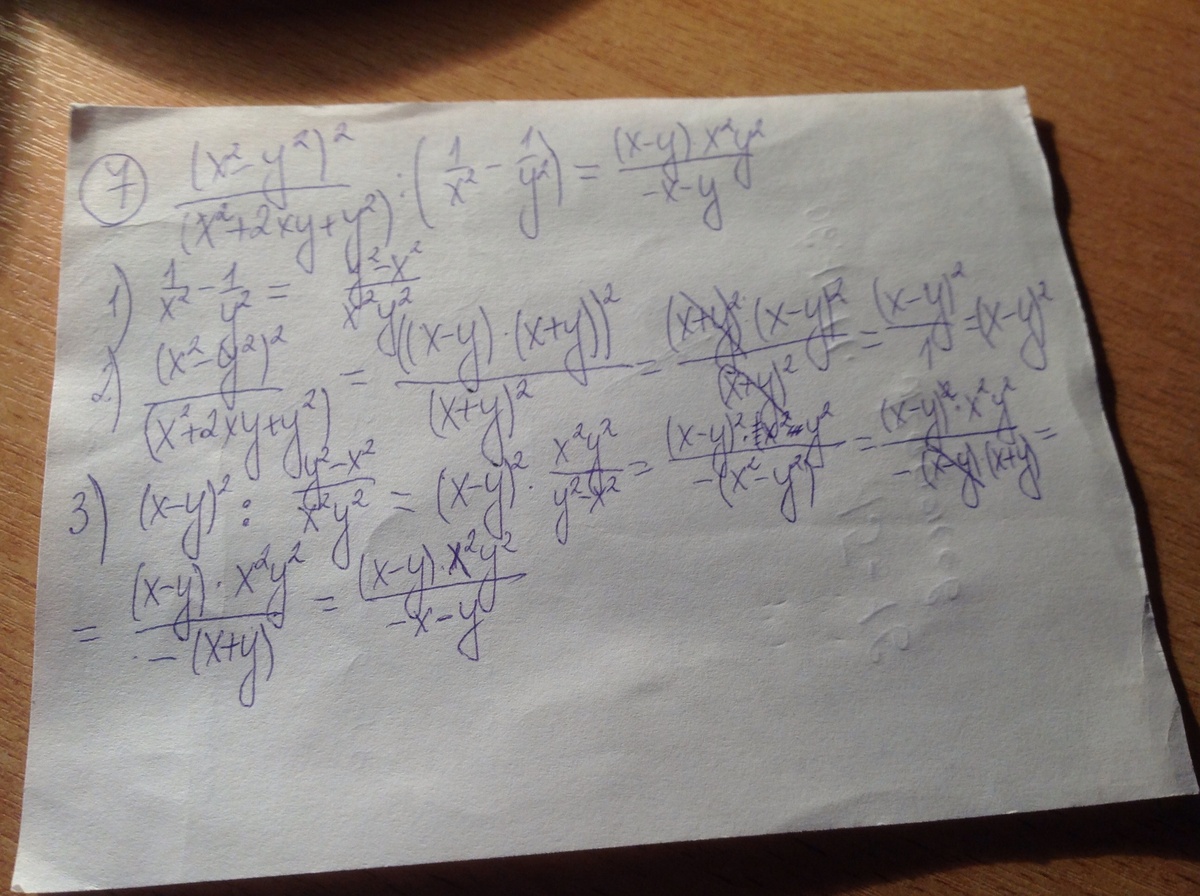 7 (x²-y²)²/(x²+2xy+y²) : (1/x² - 1/y²) = (x-y) x²y²/-x-y
1) 1/x² - 1/y² = y²-x²/x²y²
2) (x²-y²)²/(x²+2xy+y²) = ((x-y)·(x+y))²/(x+y)² = (x+y)²·(x-y)²/(x+y)² = (x-y)²/1 = (x-y)²
3) (x-y)² : y²-x²/x²y² = (x-y)² · x²y²/y²-x² = (x-y)²·x²y²/-(x²-y²) = (x-y)²·x²y²/-(x-y)(x+y) =
= (x-y)·x²y²/-(x+y) = (x-y)·x²y²/-x-y